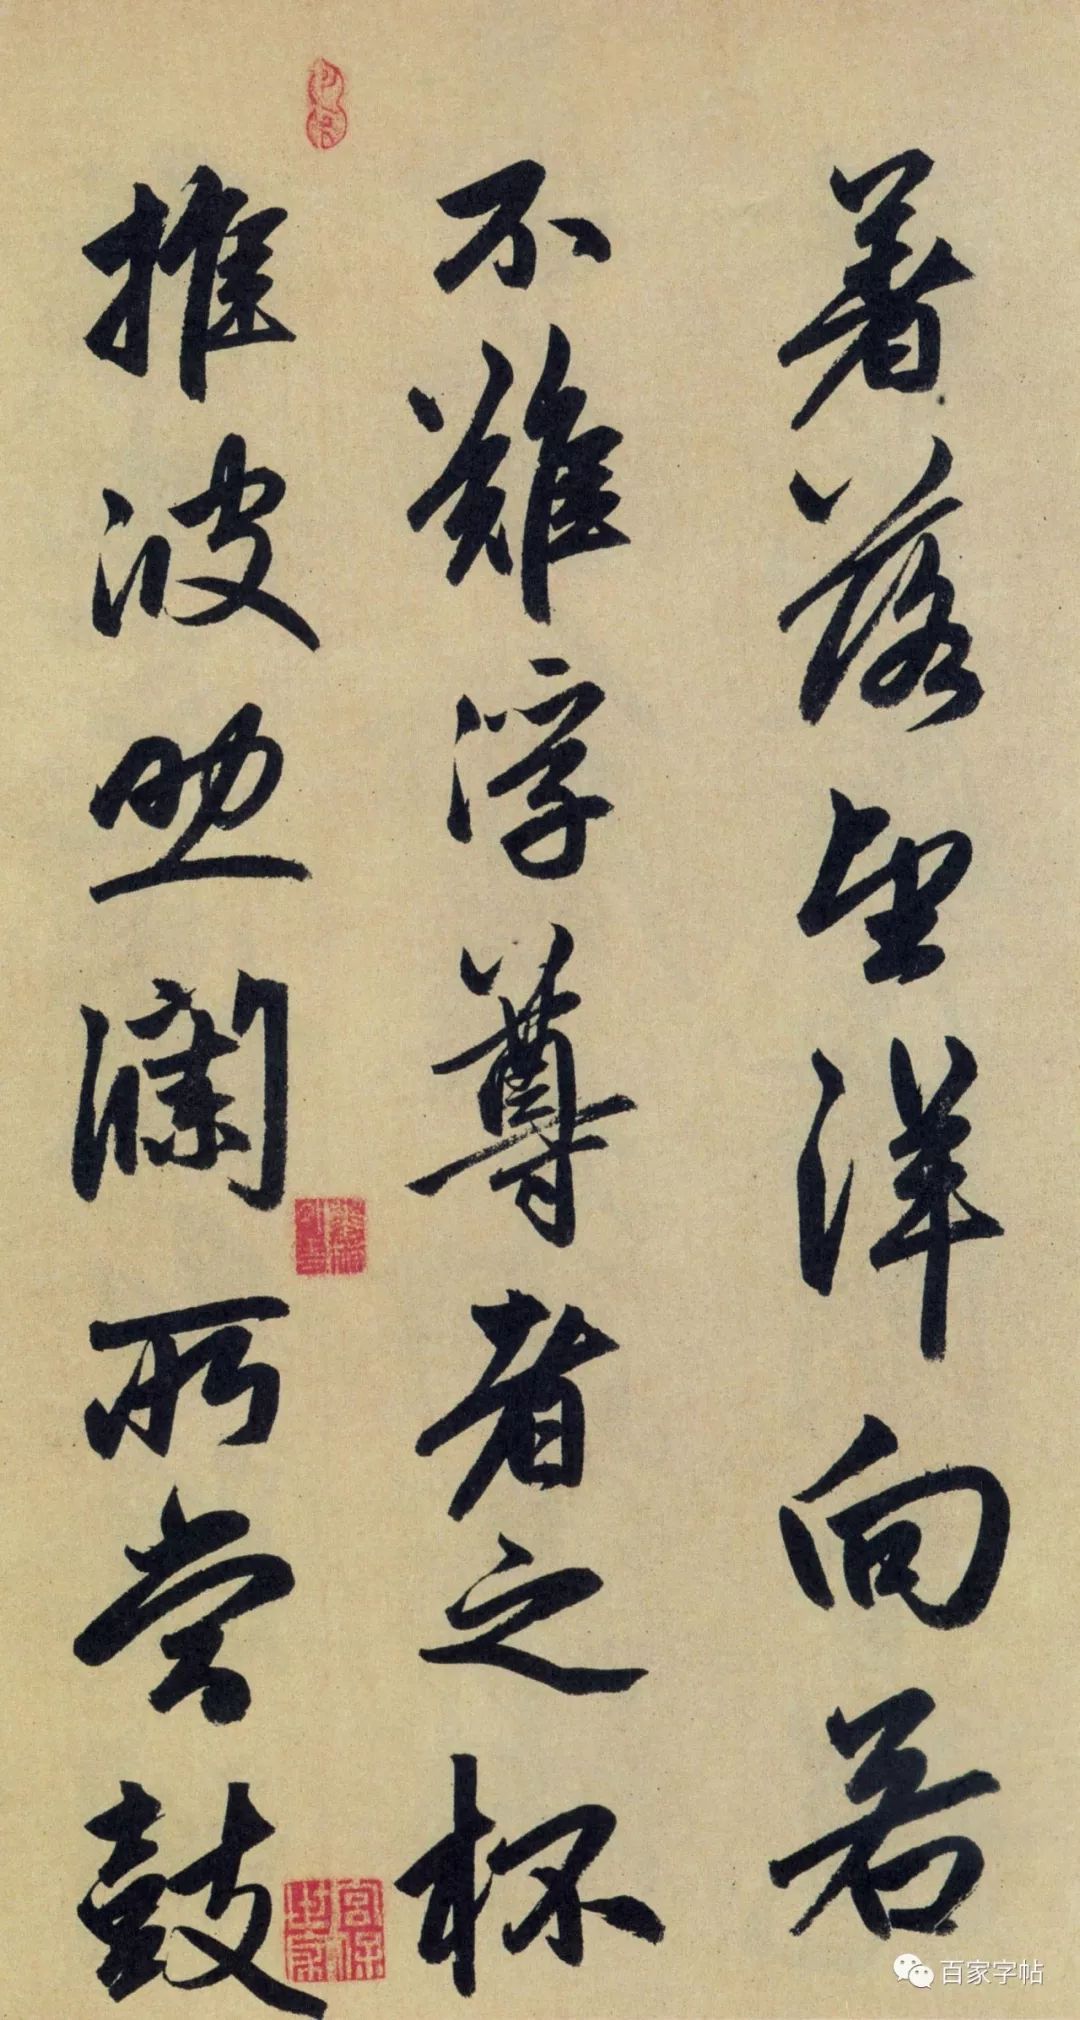 著落望洋向若
不難浮尊者之杯
推波助瀾所當鼓
百家字帖